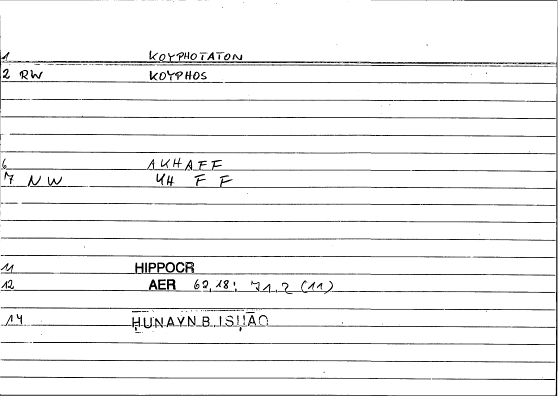 1 KOYPHOTATON
2 RW KOYPHOS
6 AKHAFF
7 NW KH F F
11 HIPPOCR
12 AER 62,18: 71,2 (11)
14 ḤUNAYN B. ISḤĀQ